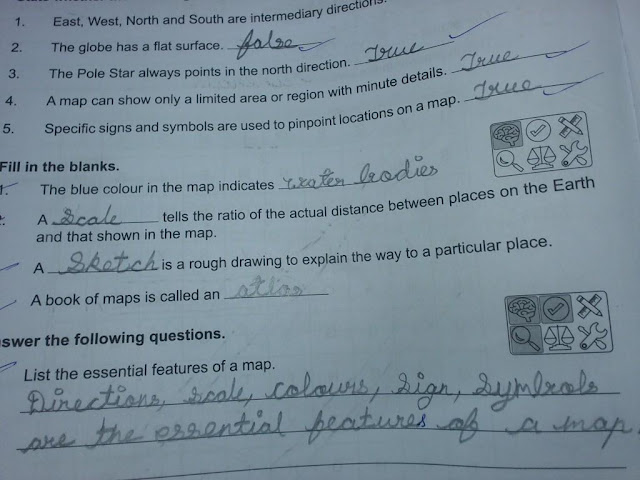 1. East, West, North and South are intermediary directions.
2. The globe has a flat surface. false
3. The Pole Star always points in the north direction. True
4. A map can show only a limited area or region with minute details. True
5. Specific signs and symbols are used to pinpoint locations on a map. True
Fill in the blanks.
1. The blue colour in the map indicates water bodies
A Scale tells the ratio of the actual distance between places on the Earth
and that shown in the map.
A Sketch is a rough drawing to explain the way to a particular place.
A book of maps is called an atlas
swer the following questions.
List the essential features of a map.
Directions, scale, colours, sign, symbols
are the essential features of a map.